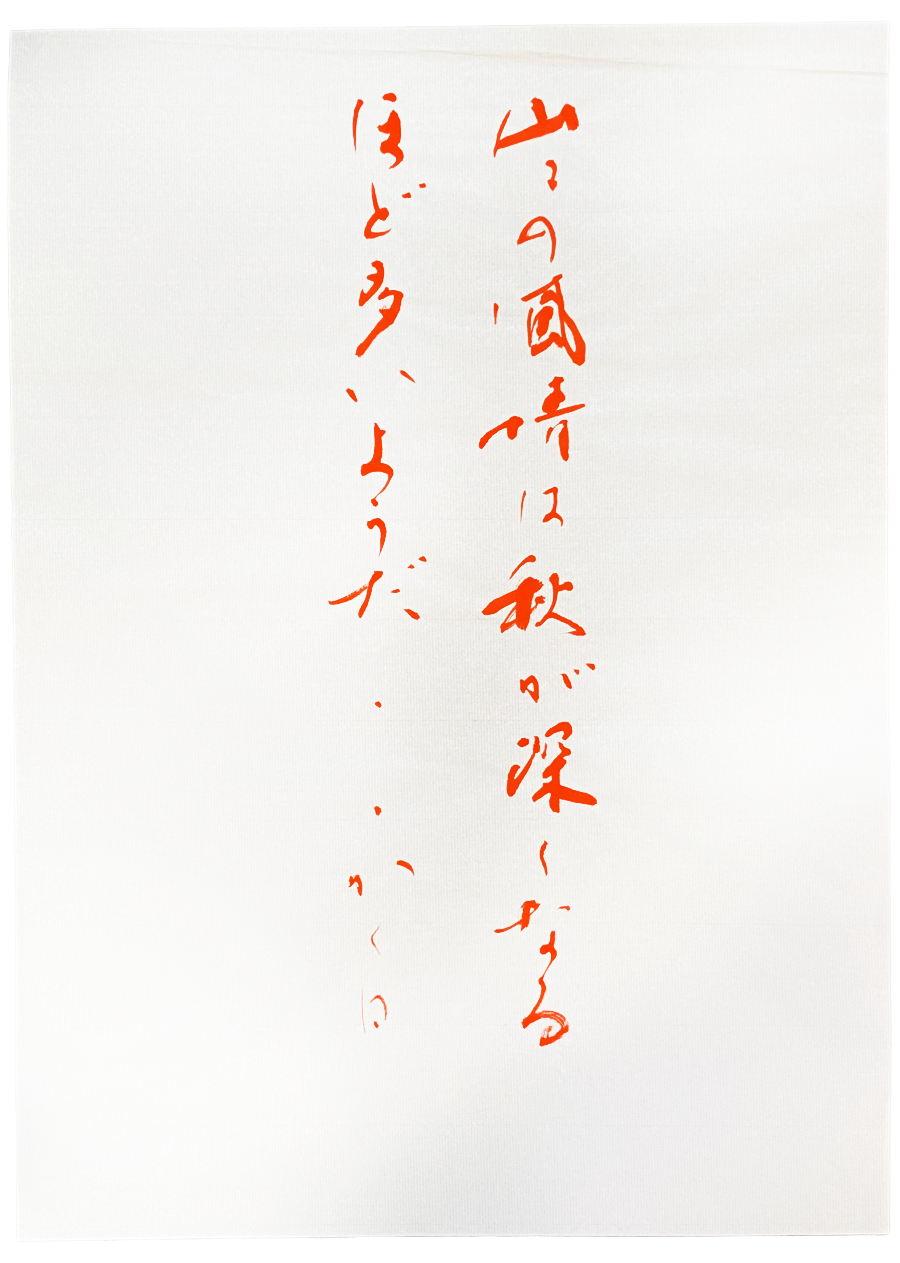 山々の風情は秋が深くなる
ほど多いようだ・・かく日